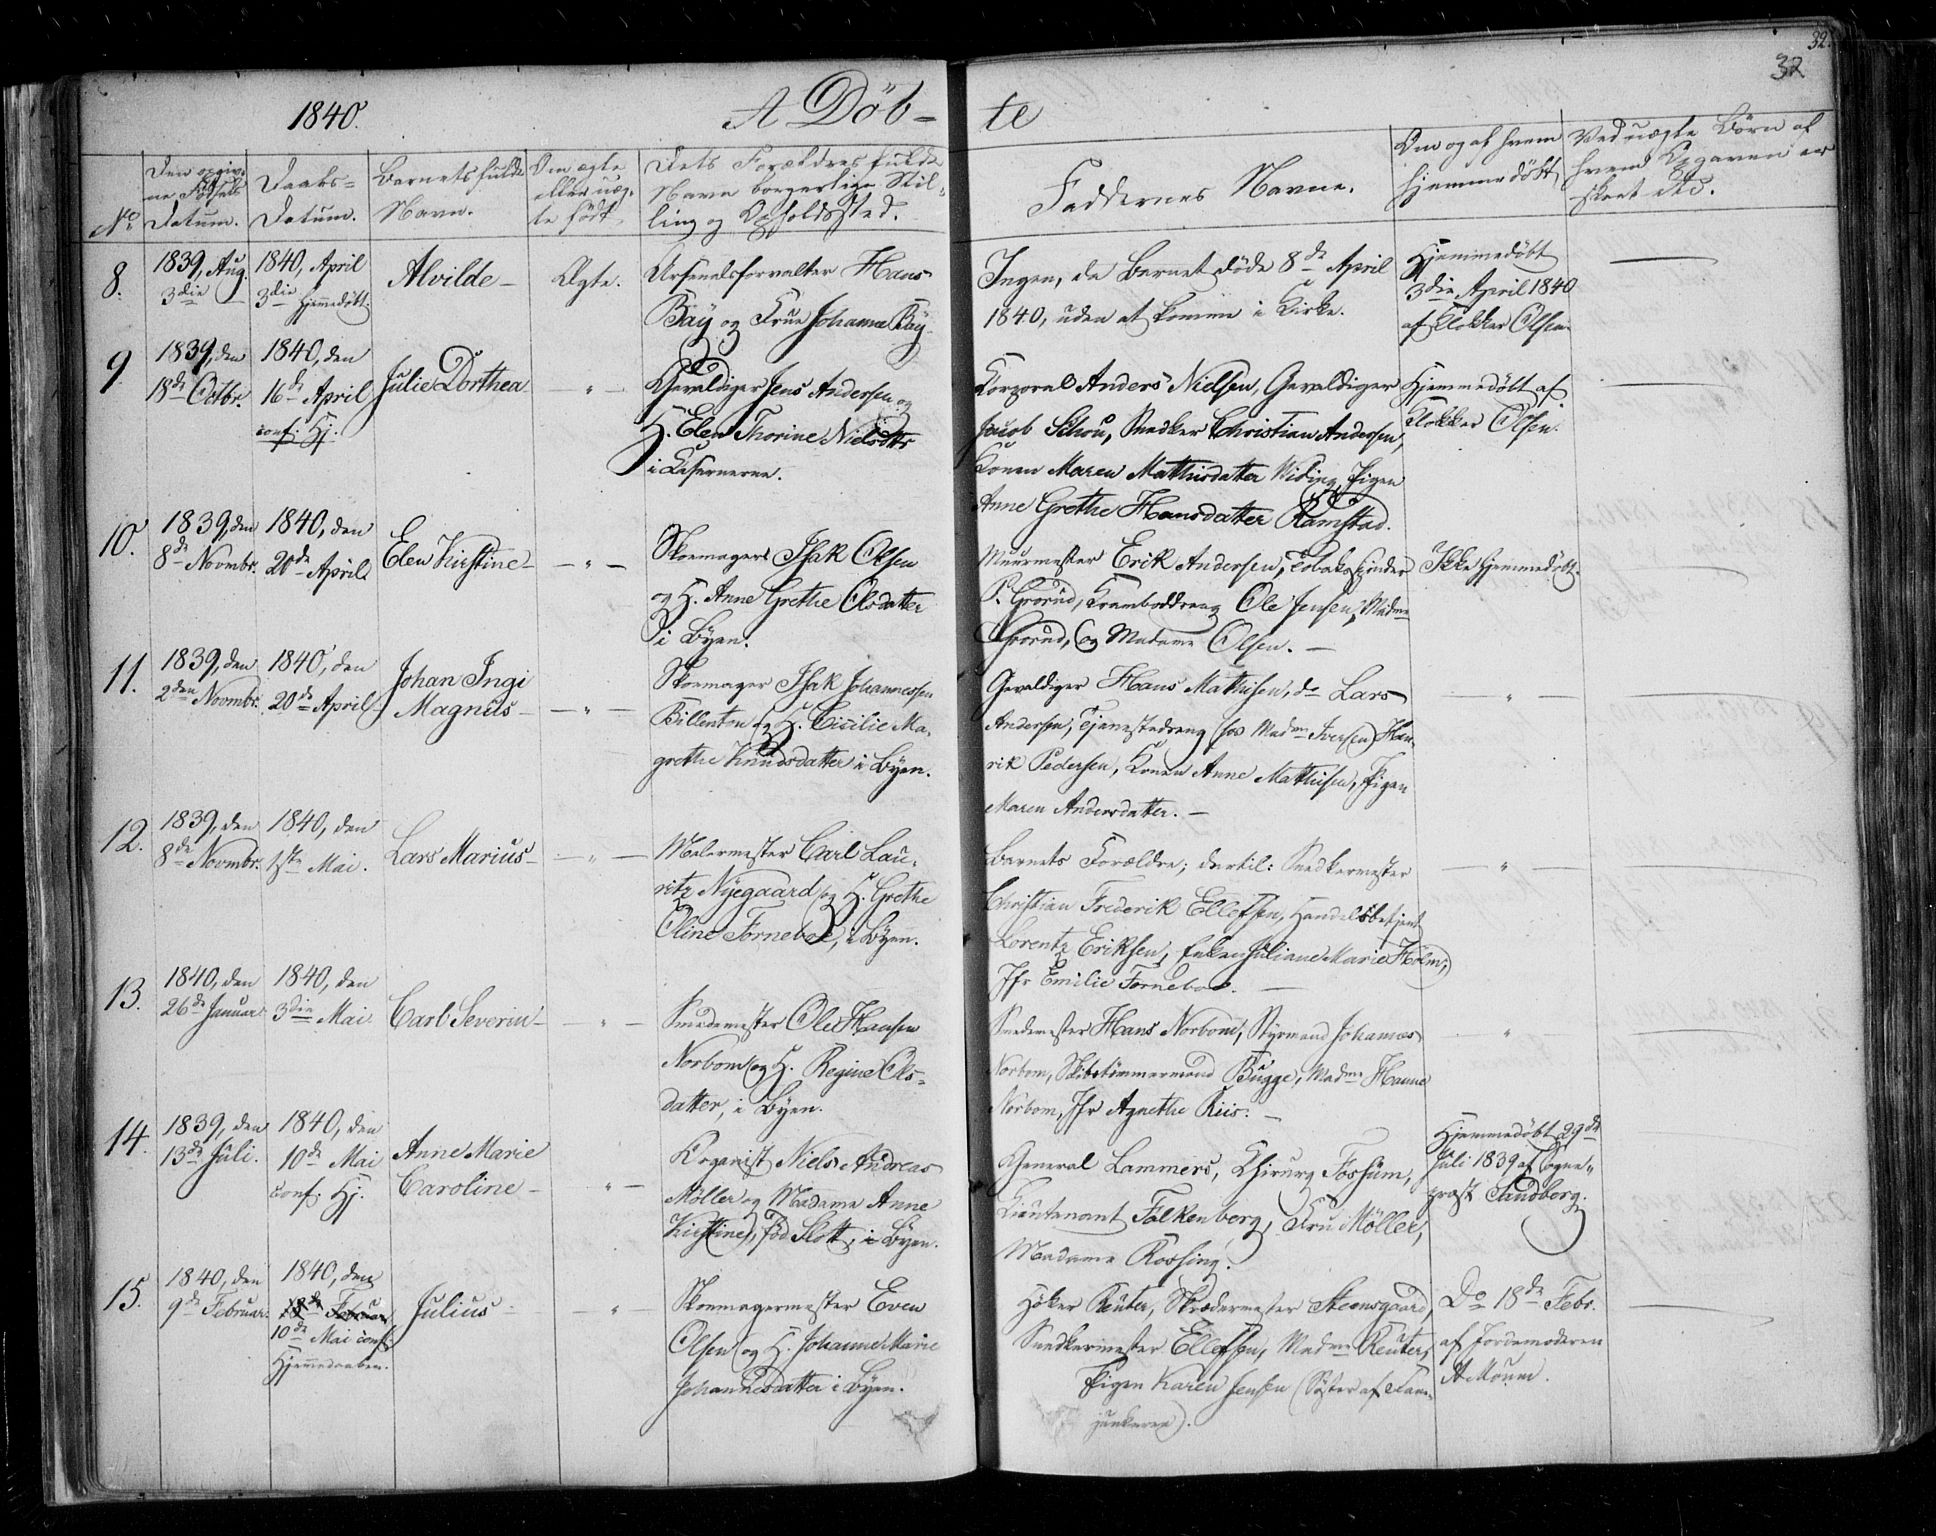 32.
32
1840.
A Döb-
te
No
Den opgiv-
ne Fødsels
Datum.
Daabs-
Datum.
Barnets fulde
Navn.
Om ægte
eller uæg-
te født.
Dets Forældres fulde
Navn borgerlige Stil-
ling og Opholdssted.
Faddernes Navne.
Om og af hvem
hjemmedøbt
Ved uægte Börn af
hvem Opgaven er
skeet etc.
8.
1839, Aug.
3die
1840, April
3die hjemmedöbt.
Alvilde -
Ægte.
Arsenalforvalter Hans
Bay og Frue Johanna Bay.
Ingen, da Barnet døde 8de April
1840, uden at komme i Kirke.
Hjemmedøbt
3die April 1840
af Klokker Olsen.
9
1839, den
18de Octbr.
1840, den
16de April
conf. Hj.
Julie Dorthea
- " -
Gevaldiger Jens Andersen og
H. Elen Thorine Nielsdttr
i Casernerne.
Korporal Anders Nielsen, Gevaldiger
Jacob Schou, Snedker Christian Andersen,
Konen Maren Mathisdatter Widing, Pigen
Anne Grethe Hansdatter Ramstad.
Hjemmedøbt af
Klokker Olsen.
10.
1839, den
8de Novmbr.
1840, den
20de April
Elen Kirstine -
- " -
Skomager Isak Olsen
og H. Anne Grethe Olsdatter
i Byen.
Muurmester Erik Andersen, Tobakspinder
P. Grorud, Kramboddreng Ole Jensen, Madme
Grorud, og Madame Olsen. -
Ikke hjemmedöbt.
11.
1839, den
2den Novmbr.
1840, den
20de April
Johan Ingi
Magnus -
- " -
Skomager Isak Johannessen
Billenton og H. Cicilie Ma-
grethe Knudsdatter i Byen.
Gevaldiger Hans Mathisen, do Lars
Andersen, Tjenestedreng (hos Madme Iversen) Hen-
rik Pedersen, Konen Anne Mathisen, Pigen
Maren Andersdatter. -
- " -
12.
1839, den
8de Novmbr.
1840, den
1ste Mai.
Lars Marius -
- " -
Malermester Carl Lau-
ritz Nyegaard og H. Grethe
Oline Forneboe, i Byen.
Barnets Forældre; dertil: Snedkermester
Christian Frederik Ellefsen, Handelsbetjent
Lorentz Eriksen, Enken Juliane Marie Holm,
Jfr Emilie Forneboe. -
- " -
13.
1840, den
26de Januar
1840, den
3die Mai
Carl Severin -
- " -
Smedemester Ole Hansen
Norbom og H. Regine Ols-
datter, i Byen.
Smedemester Hans Norbom, Styrmand Johannes
Norbom, Skibstömmermand Bugge, Madme Hanne
Norbom, Jfr Agnethe Riis. -
"
14.
1839, den
13de Juli.
1840, den
10de Mai
conf. Hj.
Anne Marie
Caroline -
" -
Organist Niels Andreas
Möller og Madame Anne
Kirstine, född Slott, i Byen.
General Lammers, Chirurg Fossum,
Lieutenant Falkenberg, Fru Möller,
Madame Rossing.
Hjemmedøbt 29de
Juli 1839 af Sogne-
prest Sandberg.
15.
1840, den
9de Februar.
1840, den
18de Februar
10de Mai conf.
Hjemmedaaben.
Julius -
- "
Skomagermester Even
Olsen og H. Johanne Marie
Johannesdatter i Byen.
Höker Reuter, Skrædermester Steensgaard,
Snedkermester Ellefsen, Madme Reuter,
Pigen Karen Jensen (Söster af Fane-
junkeren).
Do 18de Febr.
af Jordemoderen
A Moum.